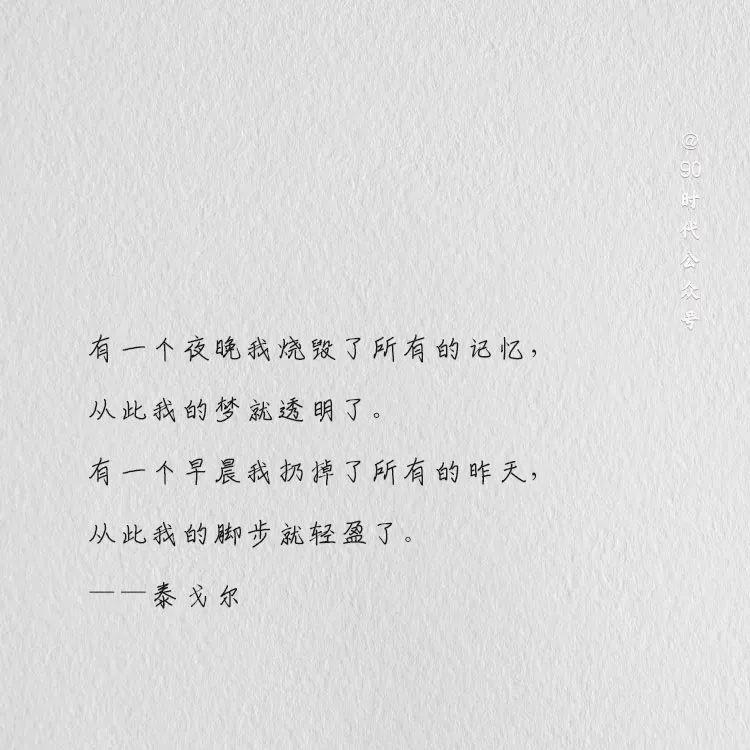 @90时代公众号
有一个夜晚我烧毁了所有的记忆，
从此我的梦就透明了。
有一个早晨我扔掉了所有的昨天，
从此我的脚步就轻盈了。
——泰戈尔